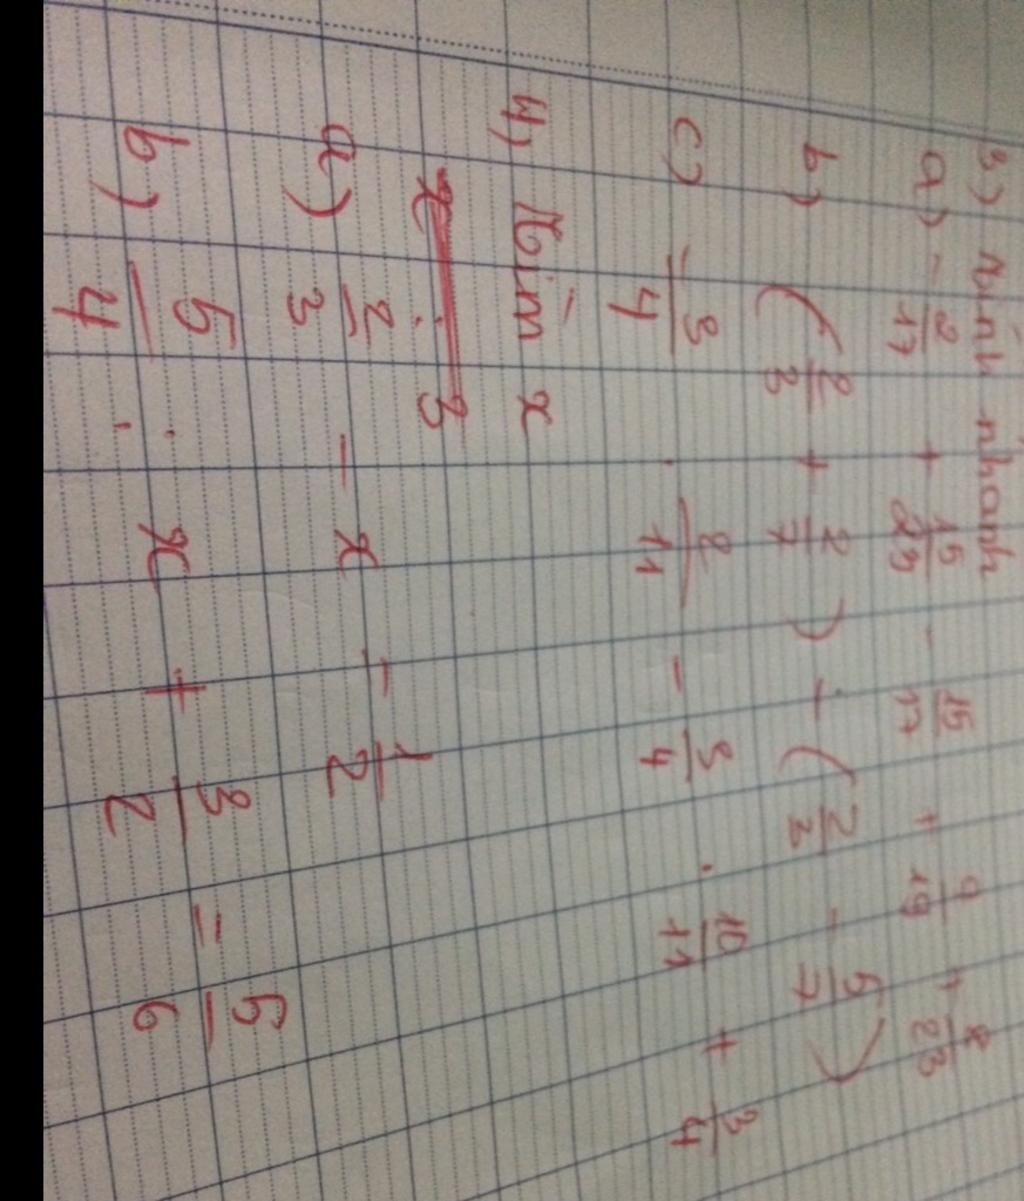 3) Tính nhanh
a) -2/17 + 15/23 - 15/17 + 4/19 + 8/23
b) (2/3 + 2/7) - (2/3 - 5/7)
c) -3/4 . 2/11 - 3/4 . 10/11 + 3/4
4) Tìm x
a) 2/3 - x - 1/2
b) 5/4 : x + 3/2 = 5/6